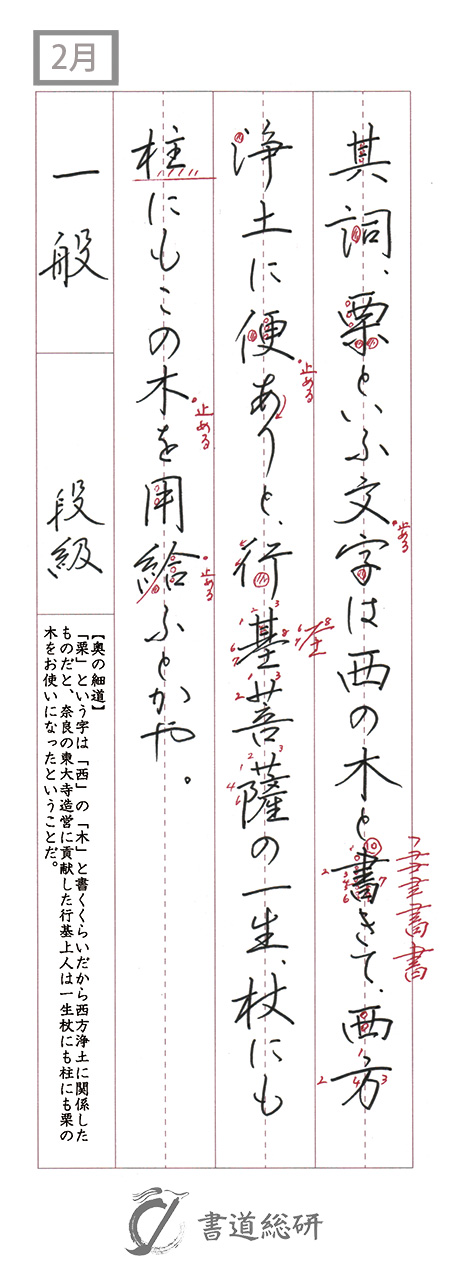 2月
其詞、栗といふ文字は西の木と書きて、西方
浄土に便ありと、行基菩薩の一生、杖にも
柱にもこの木を用給ふとかや。
止める
止める
止める
止める
書
一般
段級
【奥の細道】
「栗」という字は「西」の「木」と書くくらいだから西方浄土に関係した
ものだと、奈良の東大寺造営に貢献した行基上人は一生杖にも柱にも栗の
木をお使いになったということだ。
書道総研